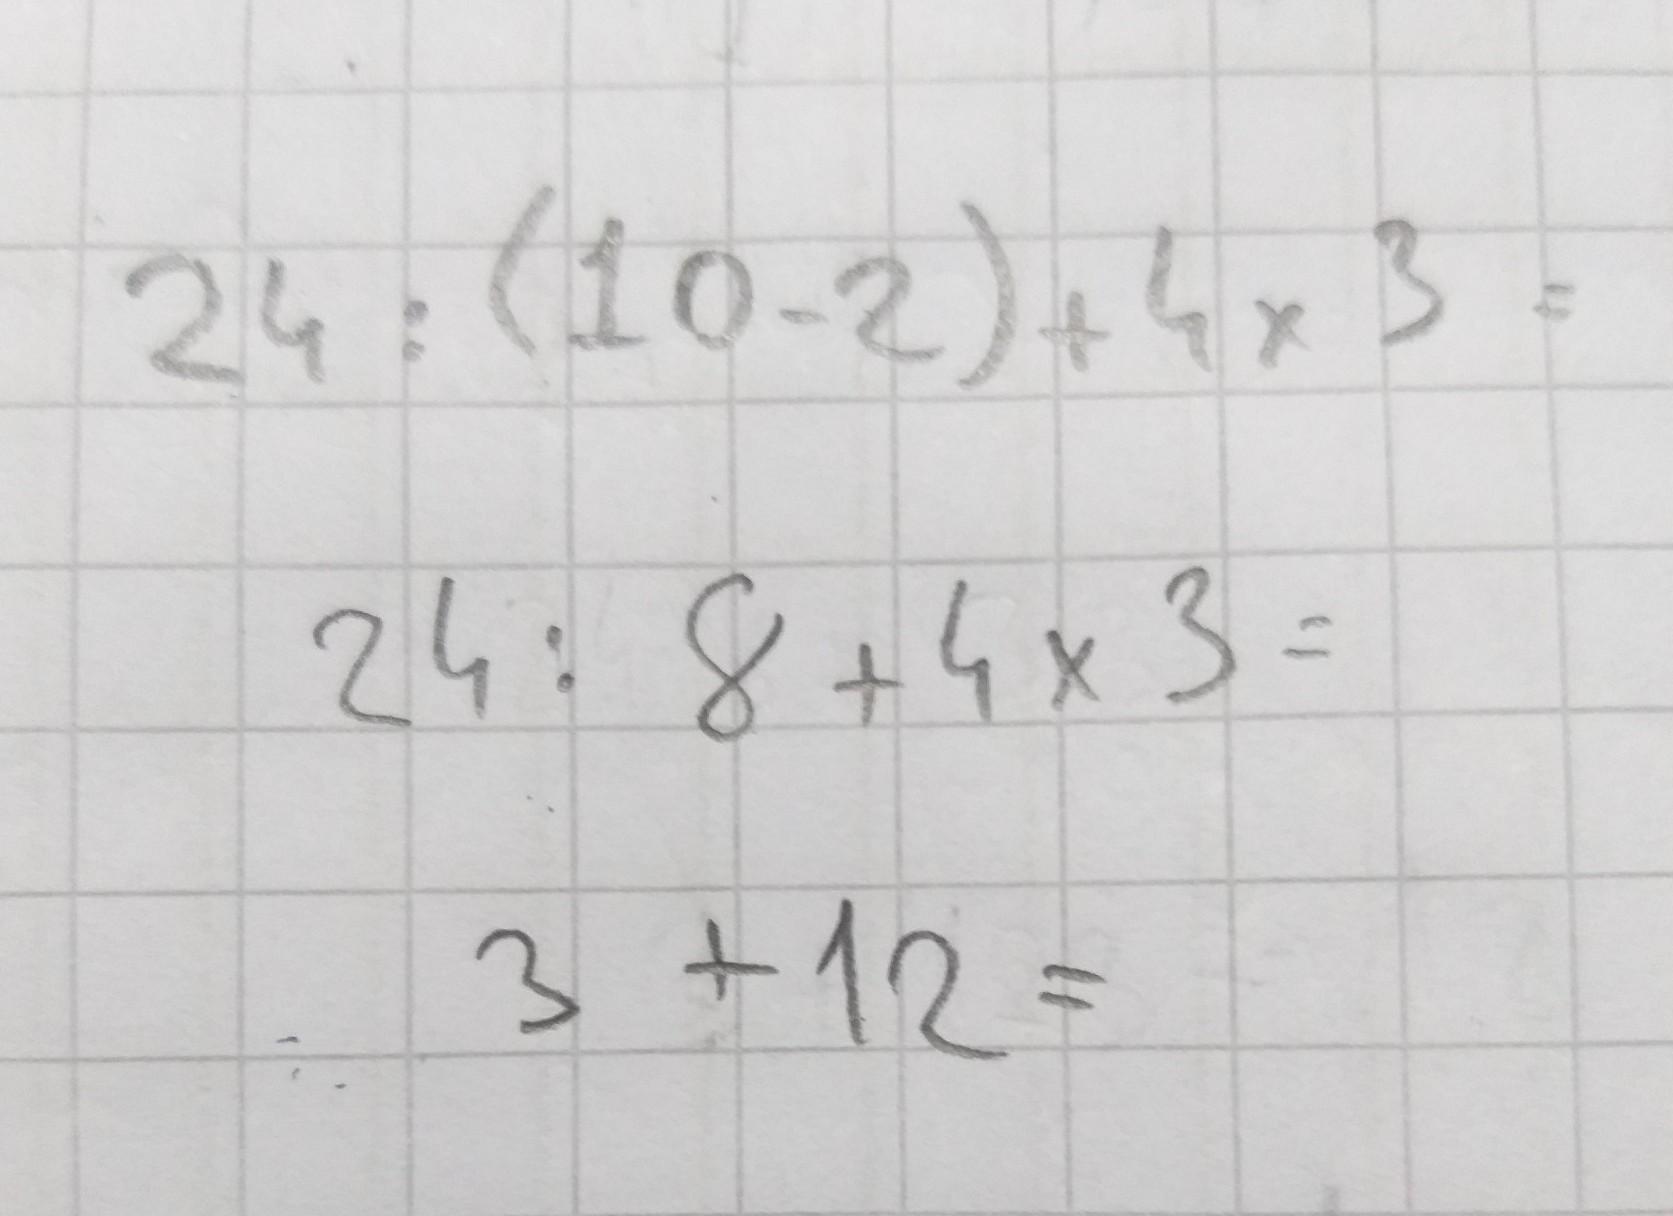 24 : (10 - 2) + 4 x 3 =
24 : 8 + 4 x 3 =
3 + 12 =